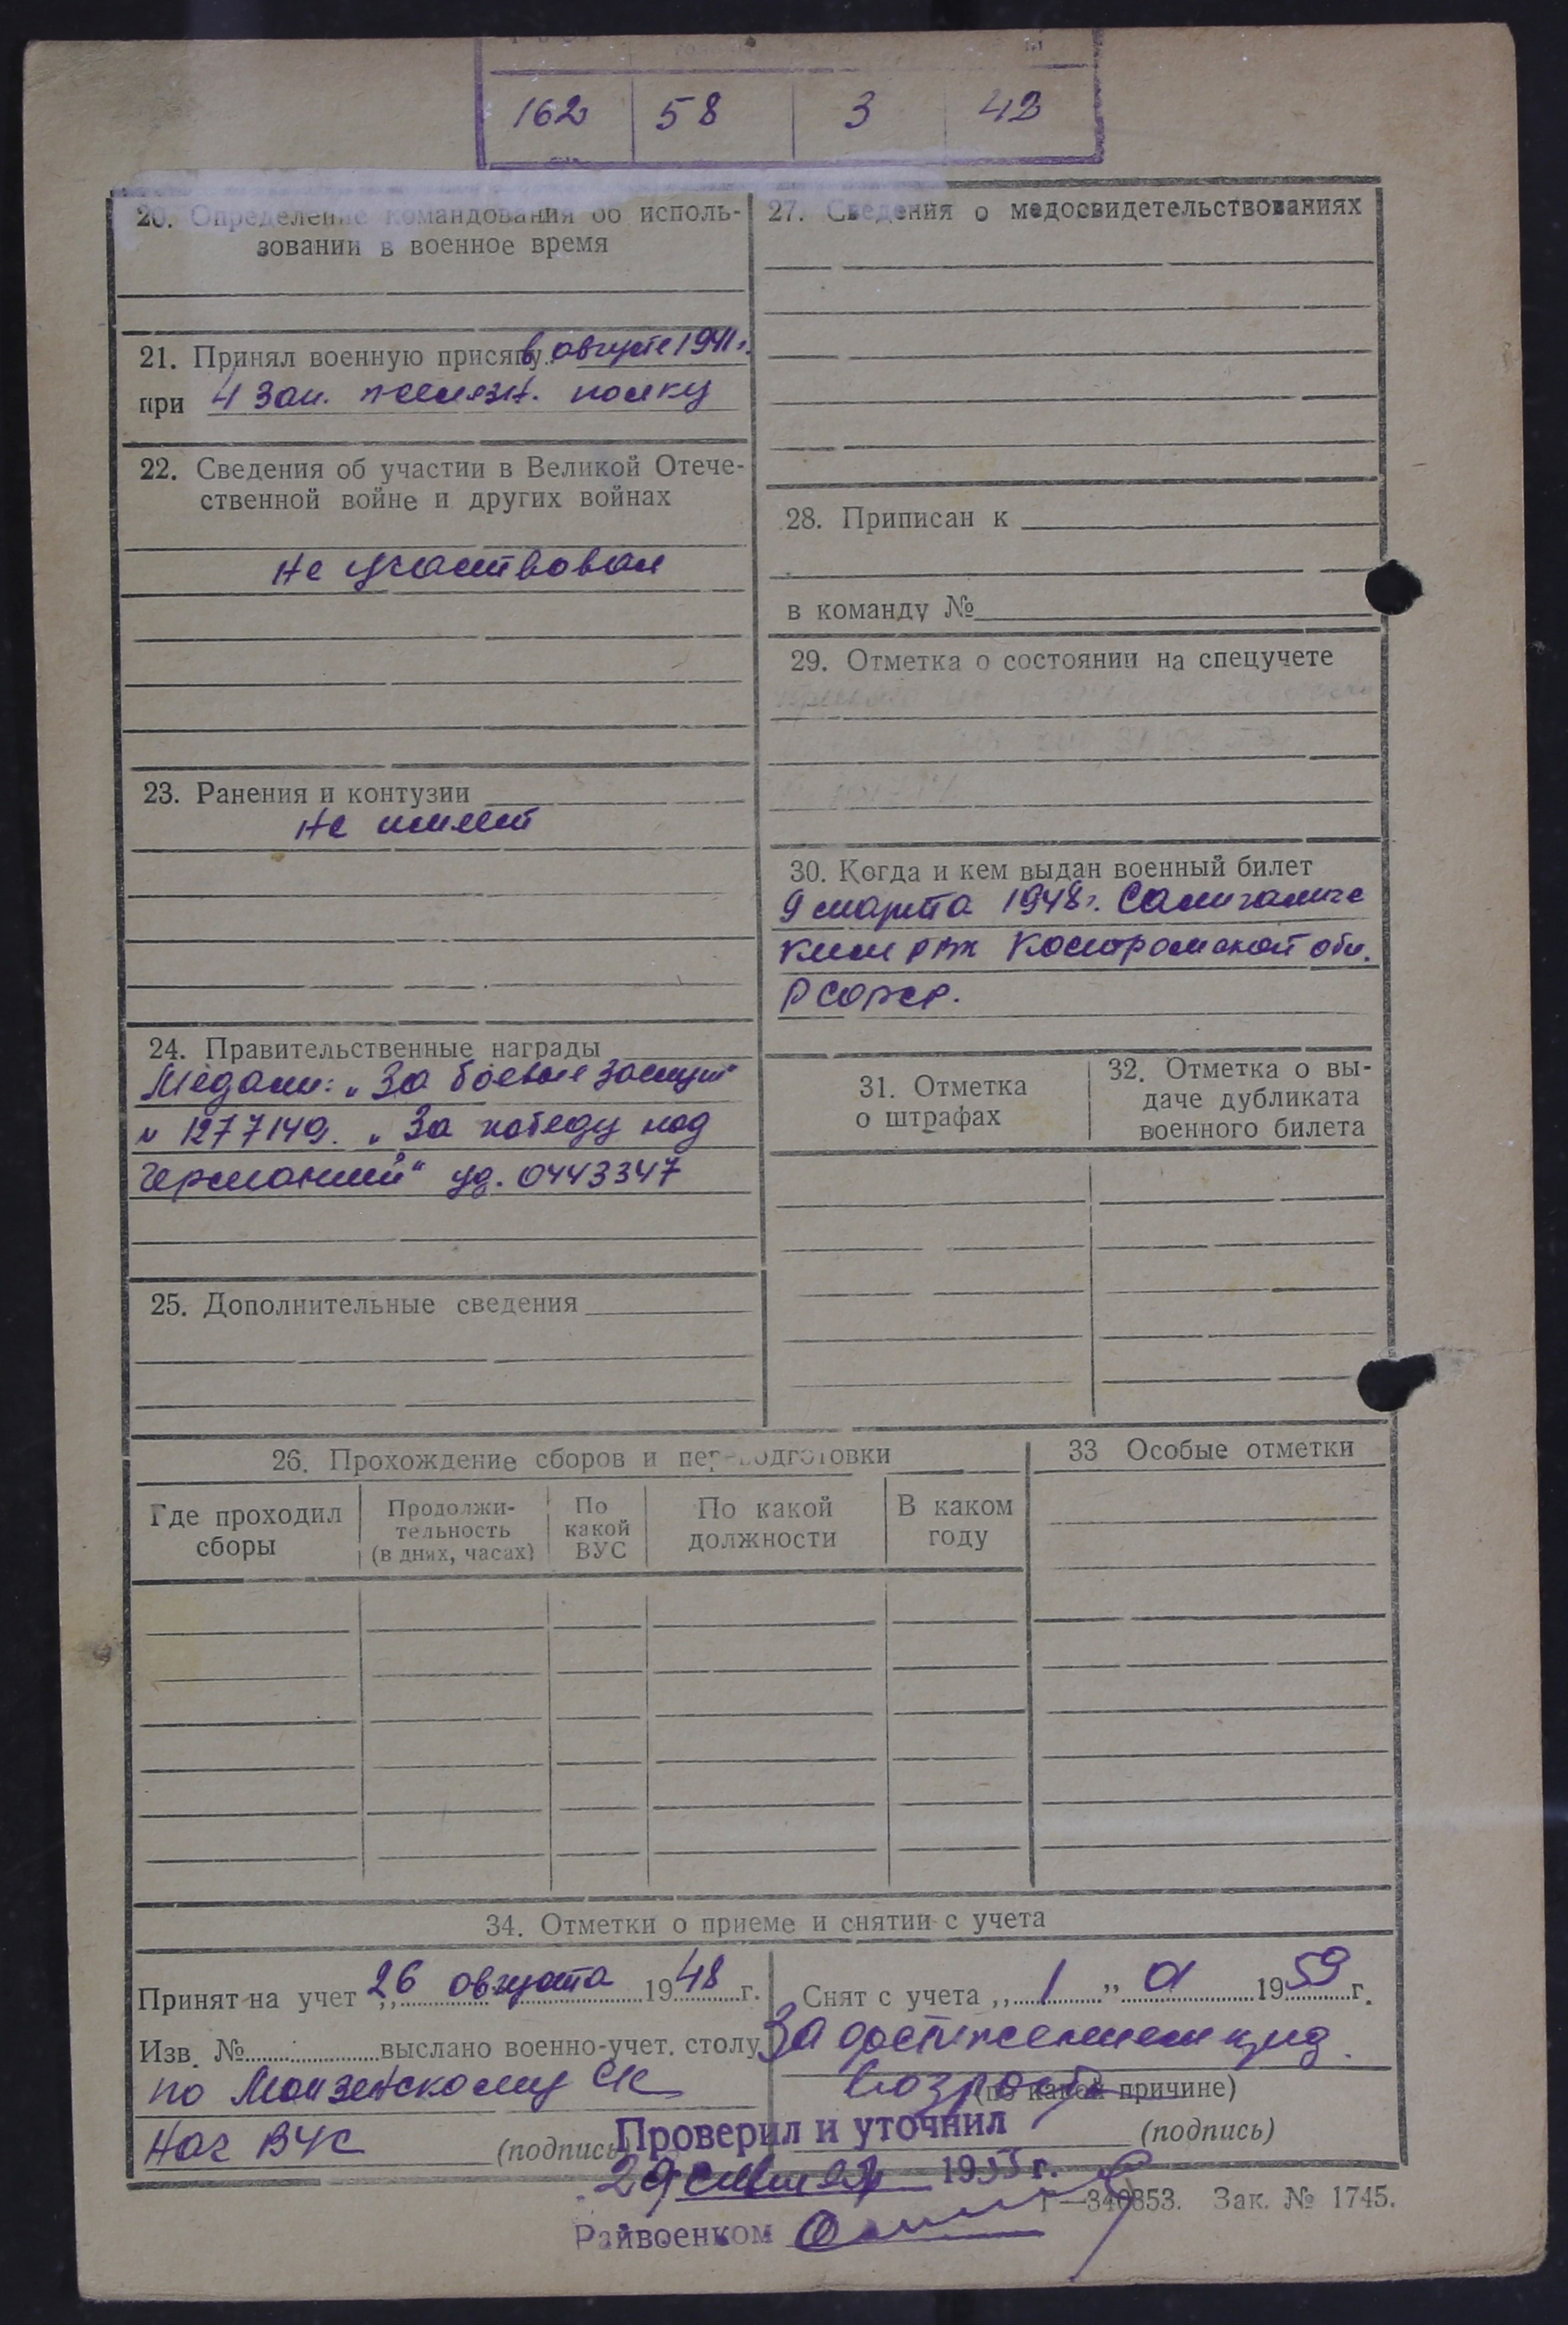 162 58 3 42
20. Определение командования об исполь-
зовании в военное время
21. Принял военную присягу в августе 1941 г.
при 4 Зап. полку
22. Сведения об участии в Великой Отече-
ственной войне и других войнах
не участвовал
23. Ранения и контузии
не имеет
24. Правительственные награды
Медали: „За боевые заслуги"
№ 1277149. „За победу над
Германией" уд. 0443347
25. Дополнительные сведения
27. Сведения о медосвидетельствованиях
28. Приписан к
в команду №
29. Отметка о состоянии на спецучете
30. Когда и кем выдан военный билет
9 марта 1948 г. Солигаличс
ким РВК Костромской обл.
РСФСР.
31. Отметка
о штрафах
32. Отметка о вы-
даче дубликата
военного билета
26. Прохождение сборов и переподготовки
Где проходил
сборы
Продолжи-
тельность
(в днях, часах)
По
какой
ВУС
По какой
должности
В каком
году
33 Особые отметки
34. Отметки о приеме и снятии с учета
Принят на учет „ 26 августа 1948 г.
Изв. № выслано военно-учет. столу
по Монзенскому СК
Нач ВУС (подпись)
Снят с учета „ 1 „ 01 1959 г.
За достижением пред.
возраста
(по какой причине)
(подпись)
Проверил и уточнил
29 1955 г.
Райвоенком
Г—340853. Зак. № 1745.